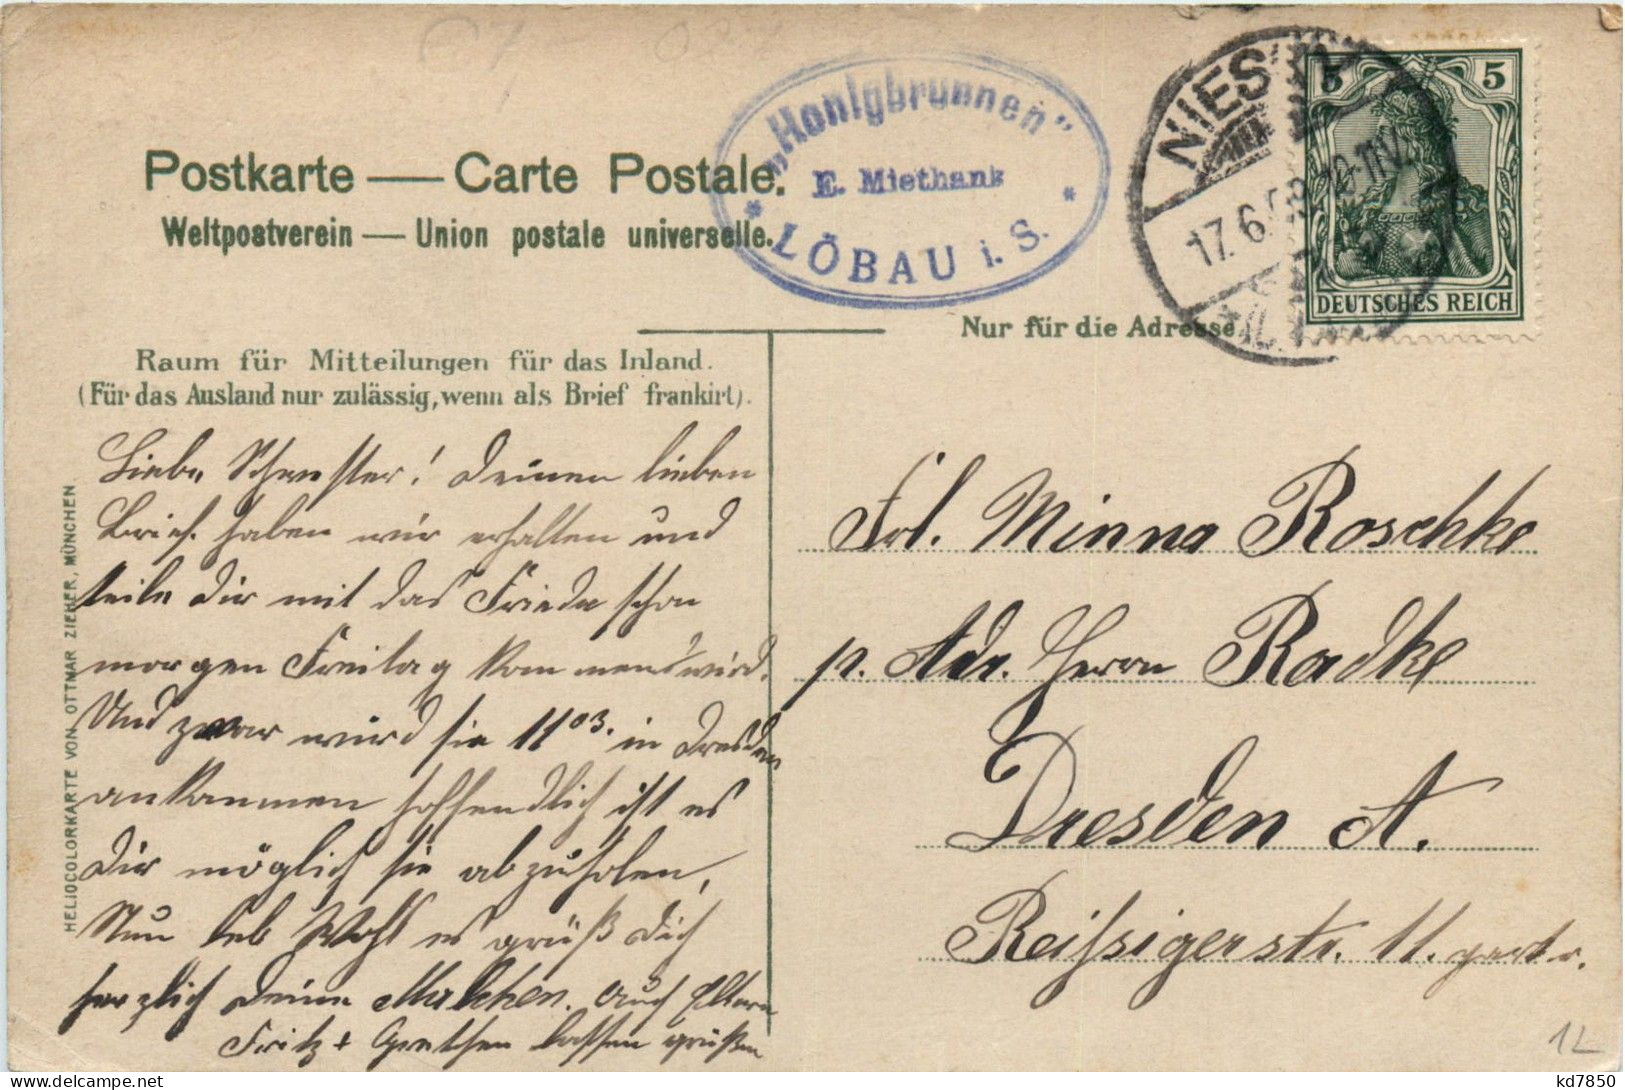 „Honigbrunnen"
E. Miethank
* LÖBAU i. S. *
NIESKY
17.6.
5 5
DEUTSCHES REICH
Postkarte — Carte Postale.
Weltpostverein — Union postale universelle.
Nur für die Adresse
Raum für Mitteilungen für das Inland.
(Für das Ausland nur zulässig, wenn als Brief frankirt).
HELIOCOLORKARTE VON OTTMAR ZIEHER, MÜNCHEN
Liebe Schwester! Deinen lieben
Brief haben wir erhalten und
teile Dir mit das Frieda schon
morgen Freitag kommen wird.
Und zwar wird sie 11 03. in Dresden
ankommen hoffendlich ist es
Dir möglich sie abzuholen,
Nun leb Wohl es grüßt Dich
herzlich Deine Malchen. Auch Eltern
Fritz + Gretchen lassen grüßen
Frl. Minna Roschke
p. Adr. Herrn Radke
Dresden A.
Reißigerstr. 11.
1L
delcampe.net
kd7850